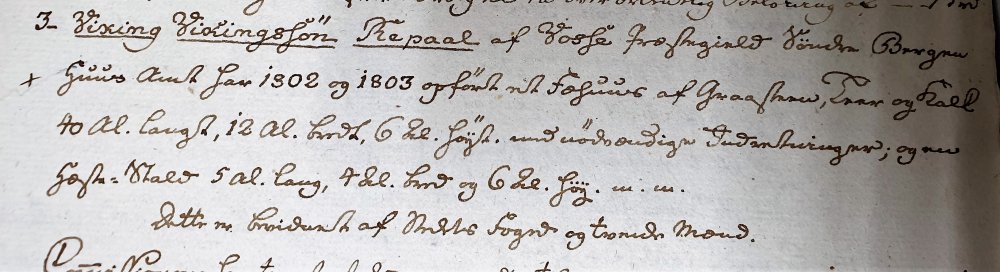 3- Viking Vikingssön Repaal af Vosse Præstegield Söndre Bergen
+ Huus Amt har 1802 og 1803 opfört et Fæhuus af Graasteen, Leer og Kalk
40 Al. langt, 12 Al. bredt, 6 Al. höyt. med nödvendige Indretninger; og en
Hæste-Stald 5 Al. lang, 4 Al. bred og 6 Al. höy. m. m.
Dette er bevidnet af Stedets Foged og tvende Mænd.